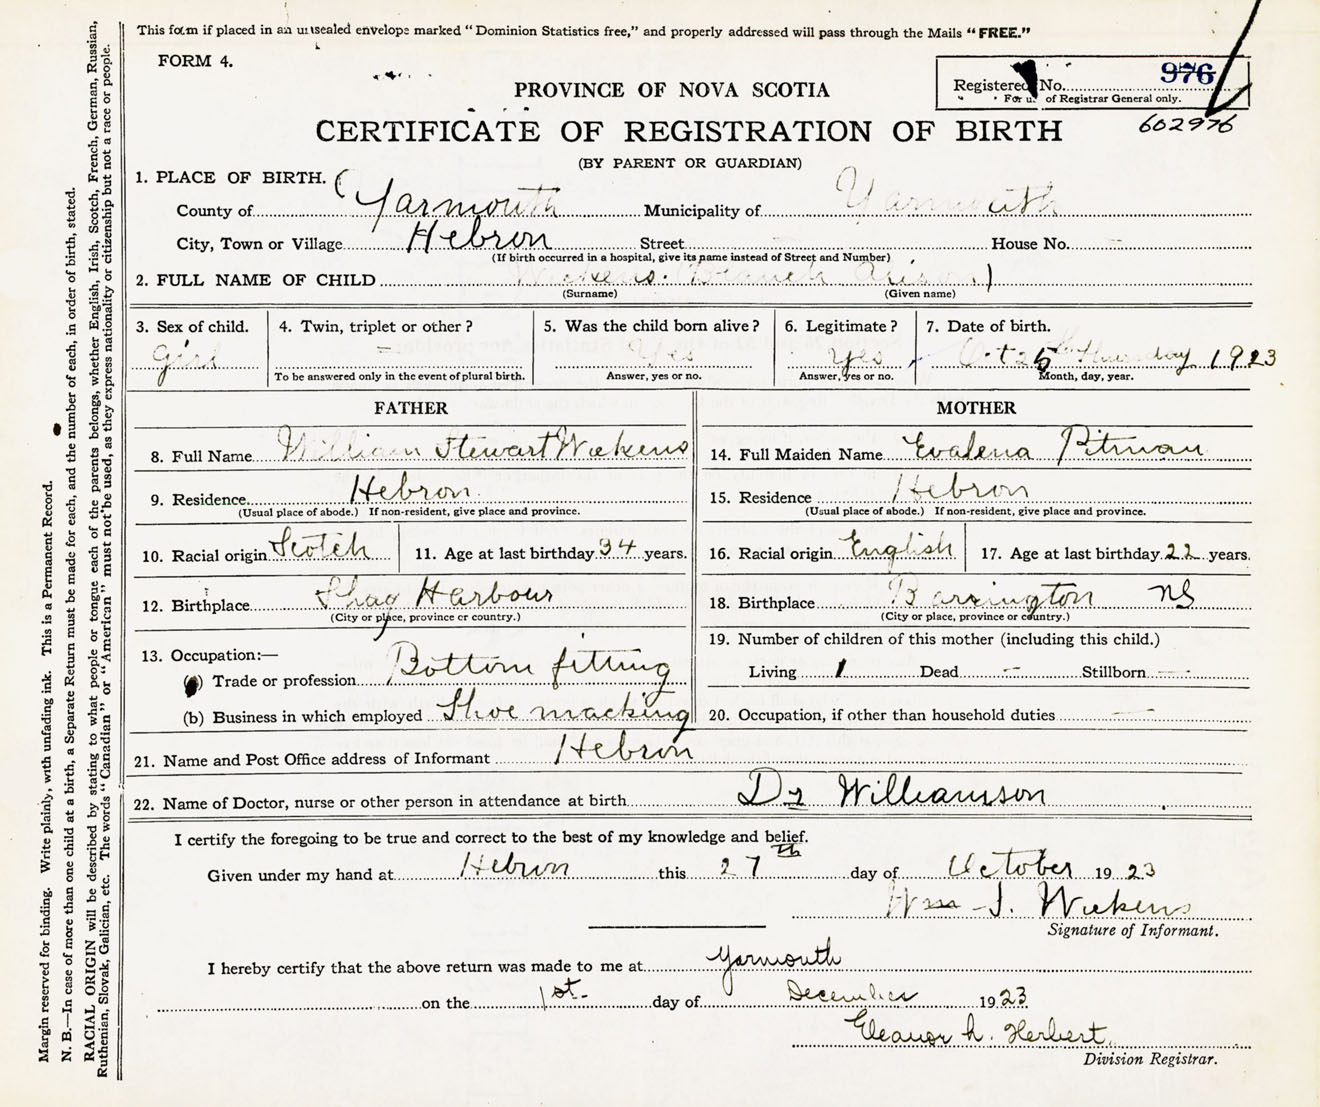 This form if placed in an unsealed envelope marked "Dominion Statistics free," and properly addressed will pass through the Mails "FREE."
FORM 4.
Registered No. 976
For u. of Registrar General only.
602976
PROVINCE OF NOVA SCOTIA
CERTIFICATE OF REGISTRATION OF BIRTH
(BY PARENT OR GUARDIAN)
1. PLACE OF BIRTH.
County of Yarmouth Municipality of Yarmouth
City, Town or Village Hebron Street House No. -
(If birth occurred in a hospital, give its name instead of Street and Number)
2. FULL NAME OF CHILD Wickens.
(Surname) (Given name)
3. Sex of child. 4. Twin, triplet or other? 5. Was the child born alive? 6. Legitimate? 7. Date of birth.
Girl - Yes Yes Oct 25th Thursday 1923
To be answered only in the event of plural birth. Answer, yes or no. Answer, yes or no. Month, day, year.
FATHER MOTHER
8. Full Name William Stewart Wickens 14. Full Maiden Name Evalena Pitman
9. Residence Hebron 15. Residence Hebron
(Usual place of abode.) If non-resident, give place and province. (Usual place of abode.) If non-resident, give place and province.
10. Racial origin Scotch 11. Age at last birthday 34 years. 16. Racial origin English 17. Age at last birthday 22 years.
12. Birthplace Shag Harbour 18. Birthplace Barrington NS
(City or place, province or country.) (City or place, province or country.)
13. Occupation:— 19. Number of children of this mother (including this child.)
(a) Trade or profession Bottom fitting Living 1 Dead - Stillborn -
(b) Business in which employed Shoe macking 20. Occupation, if other than household duties -
21. Name and Post Office address of Informant Hebron
22. Name of Doctor, nurse or other person in attendance at birth Dr Williamson
I certify the foregoing to be true and correct to the best of my knowledge and belief.
Given under my hand at Hebron this 27th day of October 1923
Wm S. Wickens
Signature of Informant.
I hereby certify that the above return was made to me at Yarmouth
on the 1st. day of December 1923
Eleanor L. Herbert.
Division Registrar.
Margin reserved for binding. Write plainly, with unfading ink. This is a Permanent Record.
N. B.—In case of more than one child at a birth, a Separate Return must be made for each, and the number of each, in order of birth, stated.
RACIAL ORIGIN will be described by stating to what people or tongue each of the parents belongs, whether English, Irish, Scotch, French, German, Russian,
Ruthenian, Slovak, Galician, etc. The words "Canadian" or "American" must not be used, as they express nationality or citizenship but not a race or people.